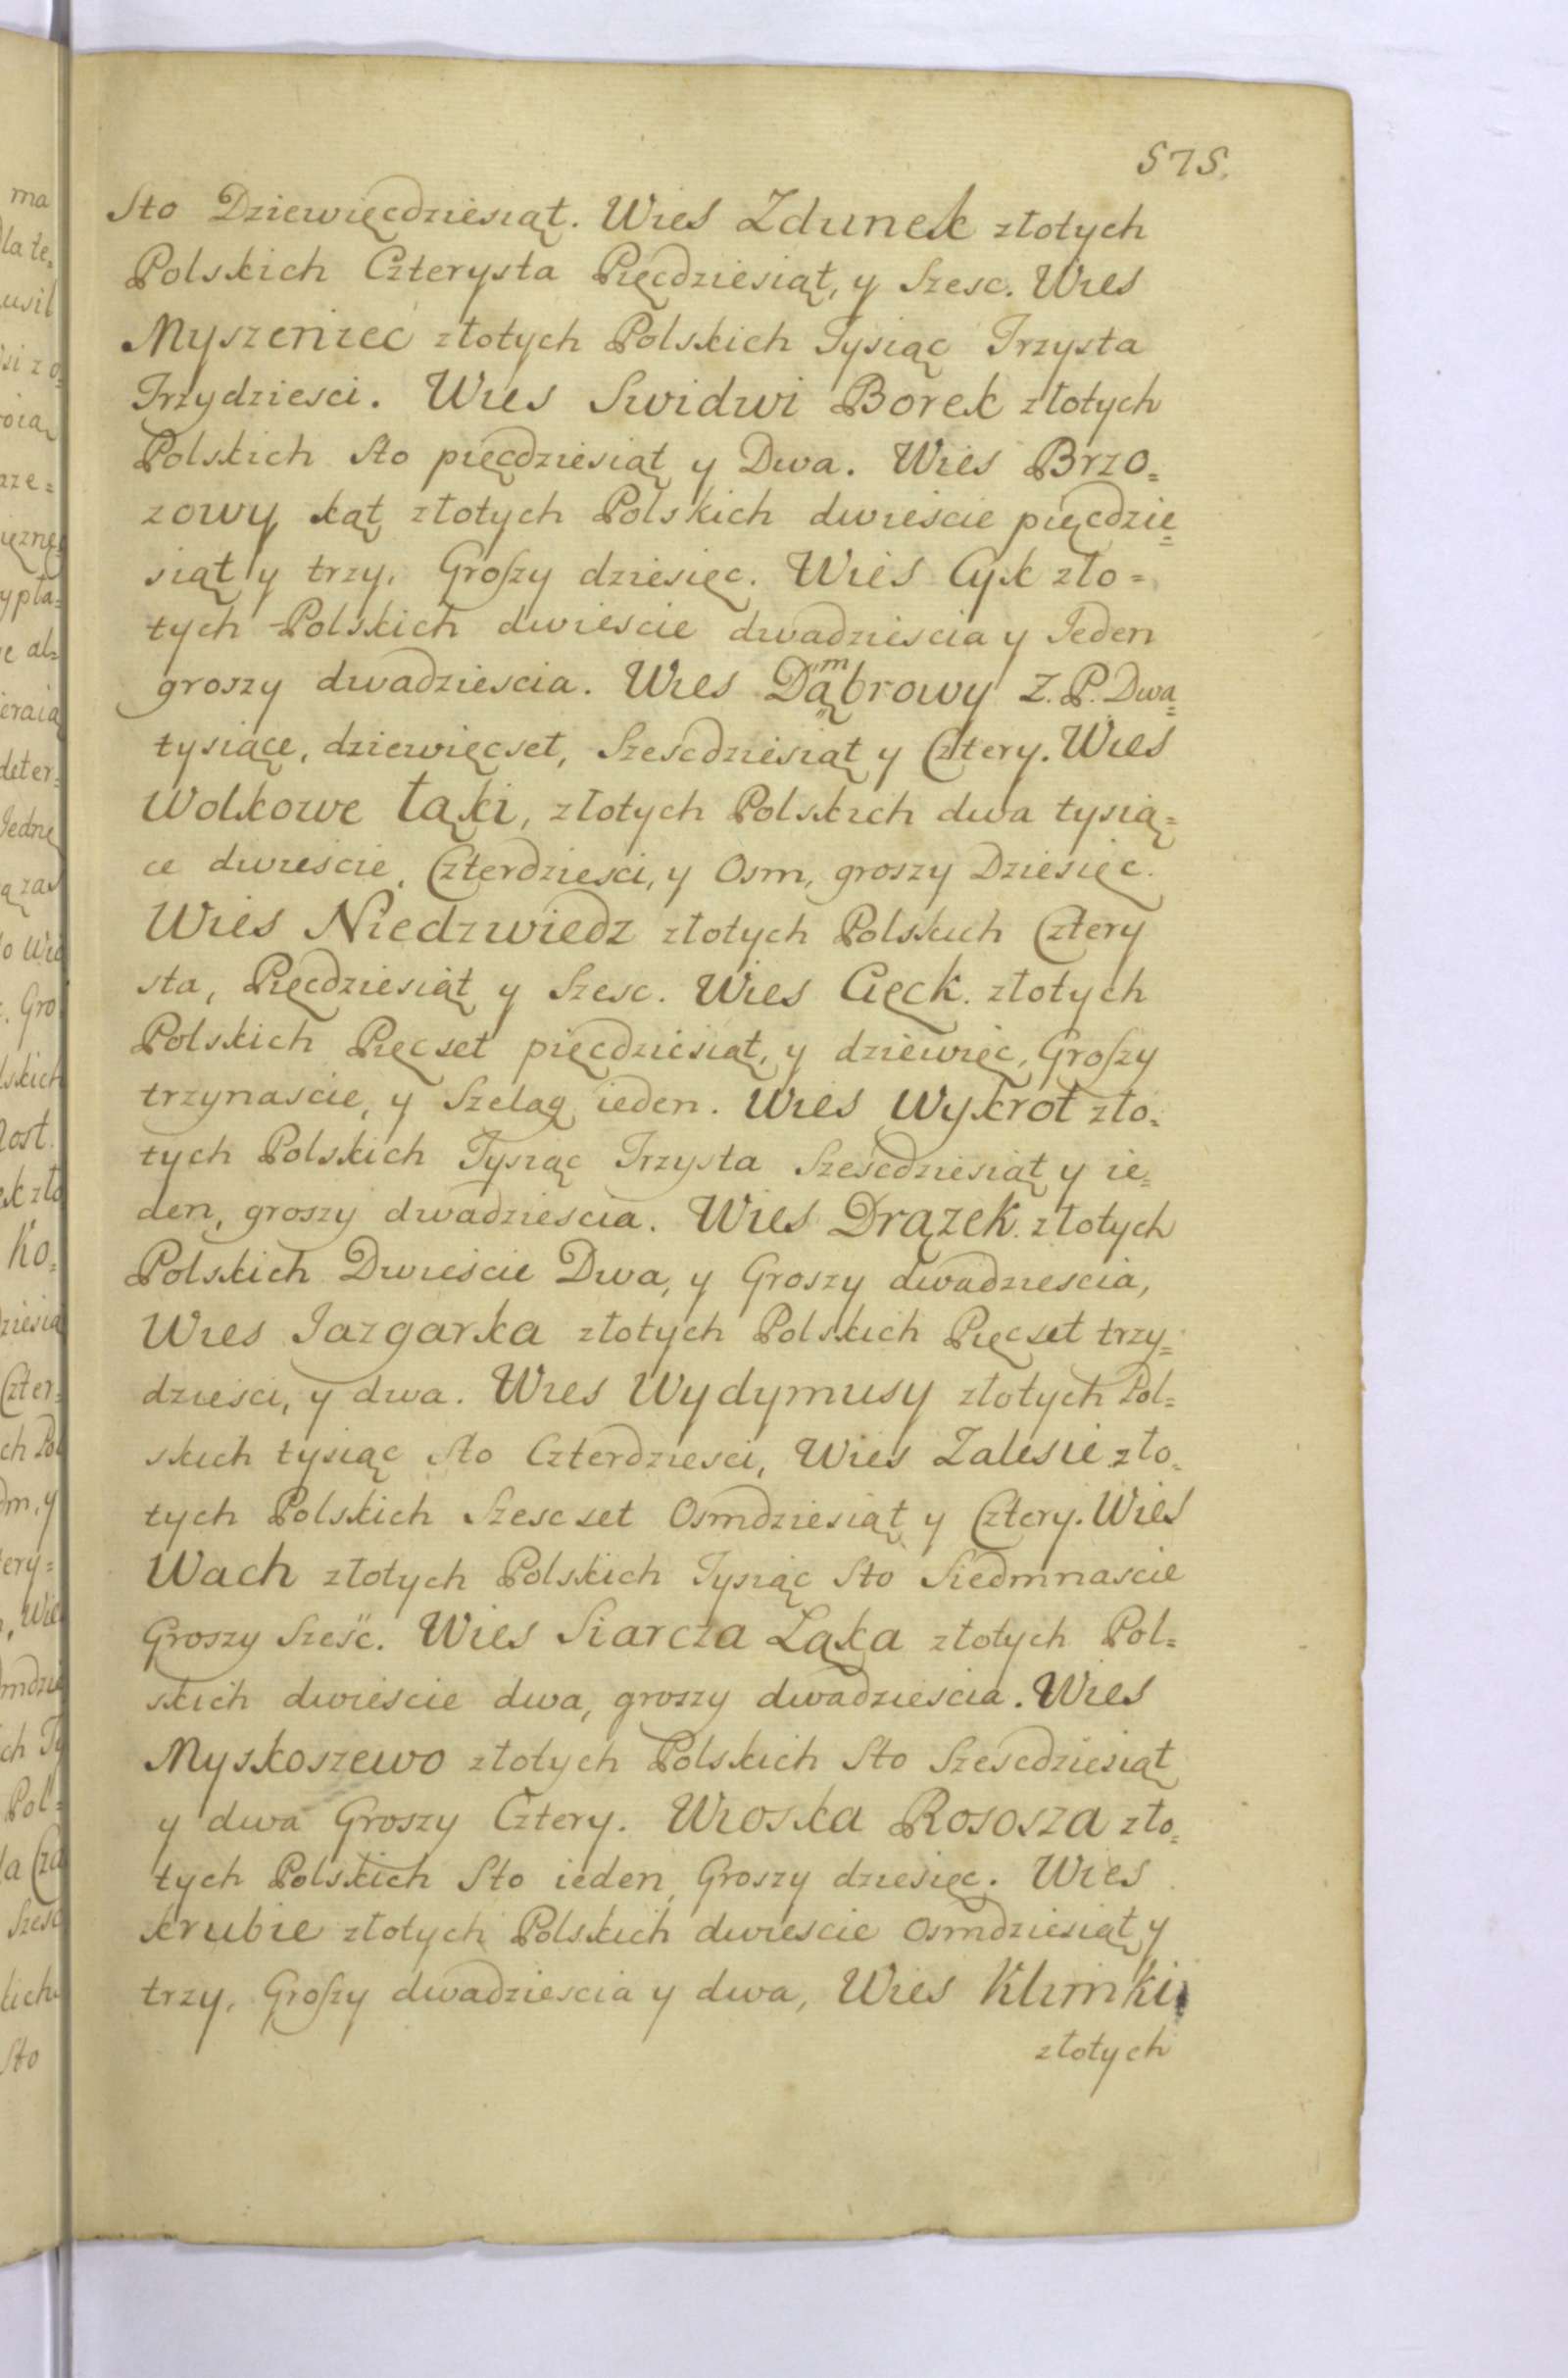 575.
Sto Dziewięcdziesiąt. Wies Zdunek złotych
Polskich Czterysta Pięcdziesiąt, y Szesc. Wies
Myszeniec złotych Polskich Tysiąc Trzysta
Trzydziesci. Wies Swidwi Borek złotych
Polskich Sto pięcdziesiąt y Dwa. Wies Brzo=
zowy kąt złotych Polskich dwiescie pięcdzie=
siąt y trzy, Groszy dziesięc. Wies Cyk zło=
tych Polskich dwiescie dwadziescia y Jeden
groszy dwadziescia. Wies Dąmbrowy Z. P. Dwa=
tysiące, dziewięcset, Szescdziesiąt y Cztery. Wies
Wolkowe łąki, złotych Polskich dwa tysią=
ce dwiescie, Czterdziesci, y Osm, groszy Dziesięc.
Wies Niedzwiedz złotych Polskich Cztery
sta, Pięcdziesiąt y Szesc. Wies Cięck. złotych
Polskich Pięcset pięcdziesiąt, y dziewięc, Groszy
trzynascie, y Szeląg ieden. Wies Wykrot zło=
tych Polskich Tysiąc Trzysta Szescdziesiąt y ie=
den, groszy dwadziescia. Wies Drązek. złotych
Polskich Dwiescie Dwa, y Groszy dwadziescia,
Wies Jazgarka złotych Polskich Pięcset trzy=
dziesci, y dwa. Wies Wydymusy złotych Pol=
skich tysiąc Sto Czterdziesci, Wies Zalesie zło=
tych Polskich Szescset Osmdziesiąt y Cztery. Wies
Wach złotych Polskich Tysiąc Sto Siedmnascie
Groszy Sześc. Wies Siarcza Ląka złotych Pol=
skich dwiescie dwa, groszy dwadziescia. Wies
Myskoszewo złotych Polskich Sto Szescdziesiąt
y dwa Groszy Cztery. Wioska Rososza zło=
tych Polskich Sto ieden, Groszy dziesięc. Wies
krubie złotych Polskich dwiescie osmdziesiąt y
trzy, Groszy dwadziescia y dwa, Wies Klimki
złotych